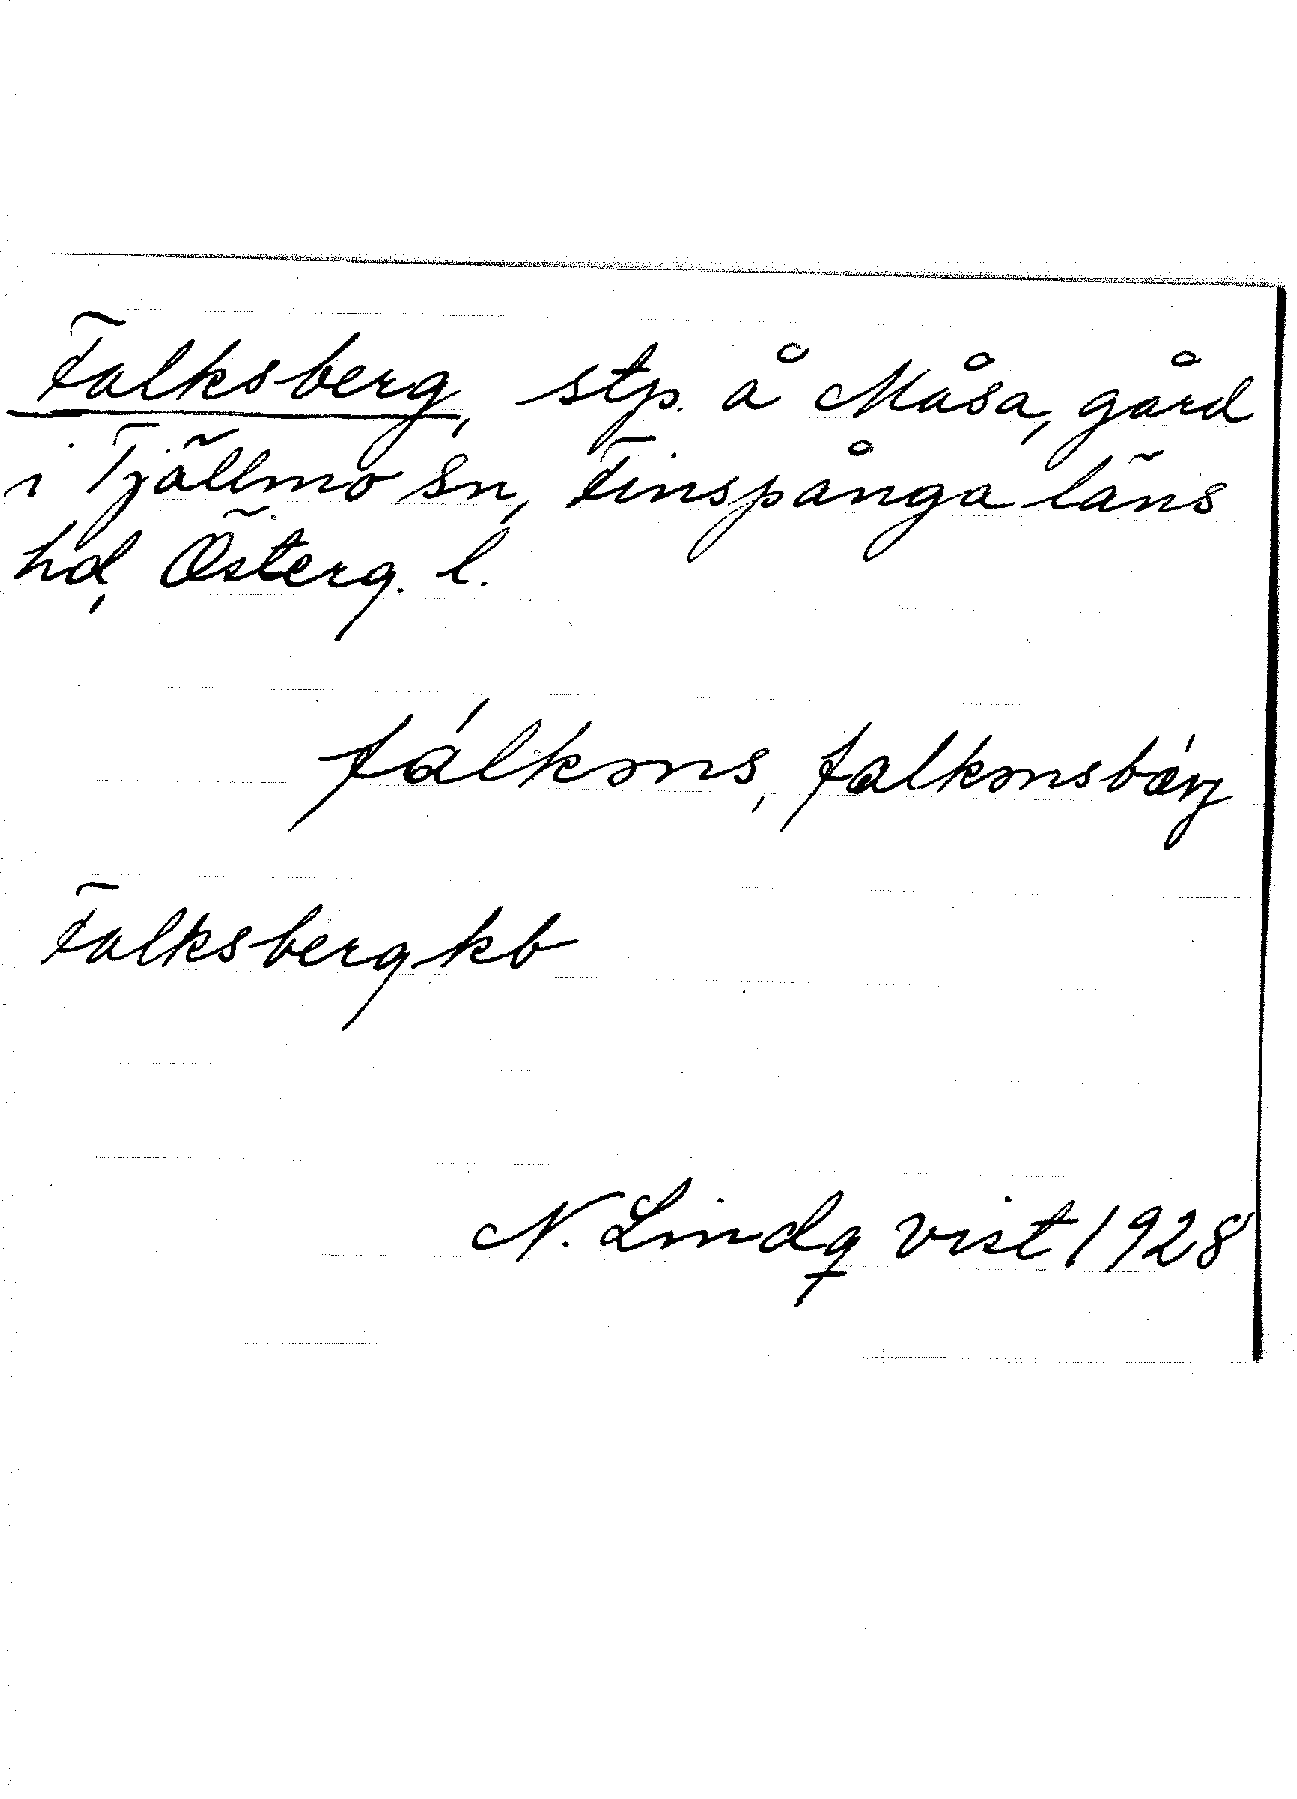 Falksberg, stp. å Måsa, gård
i Tjällmo sn, Finspånga läns
hd, Österg. l.
fálkəns, falkənsbǽrj
Falksberg kb
N. Lindqvist 1928